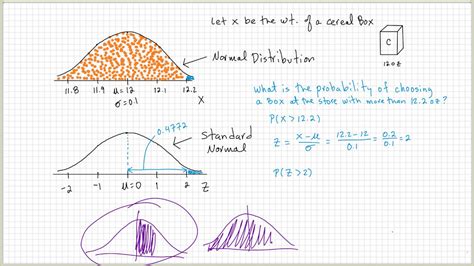 Let x be the wt. of a cereal Box
C
12oz
Normal Distribution
11.8 11.9 μ=12 12.1 12.2 X
σ=0.1
What is the probability of choosing
a Box at the store with more than 12.2oz?
P(X>12.2)
Z = x-μ/σ = 12.2-12/0.1 = 0.2/0.1 = 2
P(Z>2)
0.4772
Standard
Normal
-2 -1 μ=0 1 2 Z